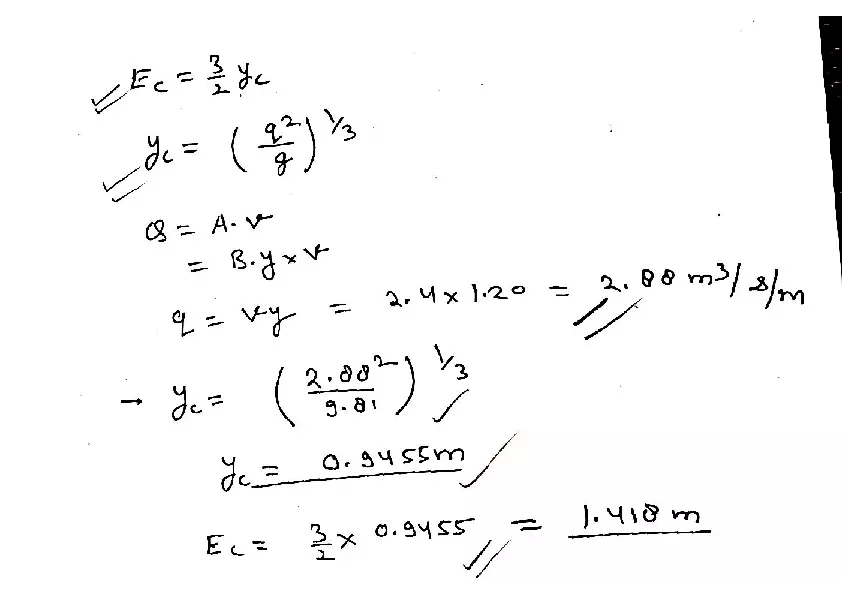 E_c = 3/2 y_c
y_c = (q²/g)^1/3
Q = A.v
= B.y × v
q = vy = 2.4 × 1.20 = 2.88 m³/s/m
→ y_c = (2.88²/9.81)^1/3
y_c = 0.9455m
E_c = 3/2 × 0.9455 = 1.418 m